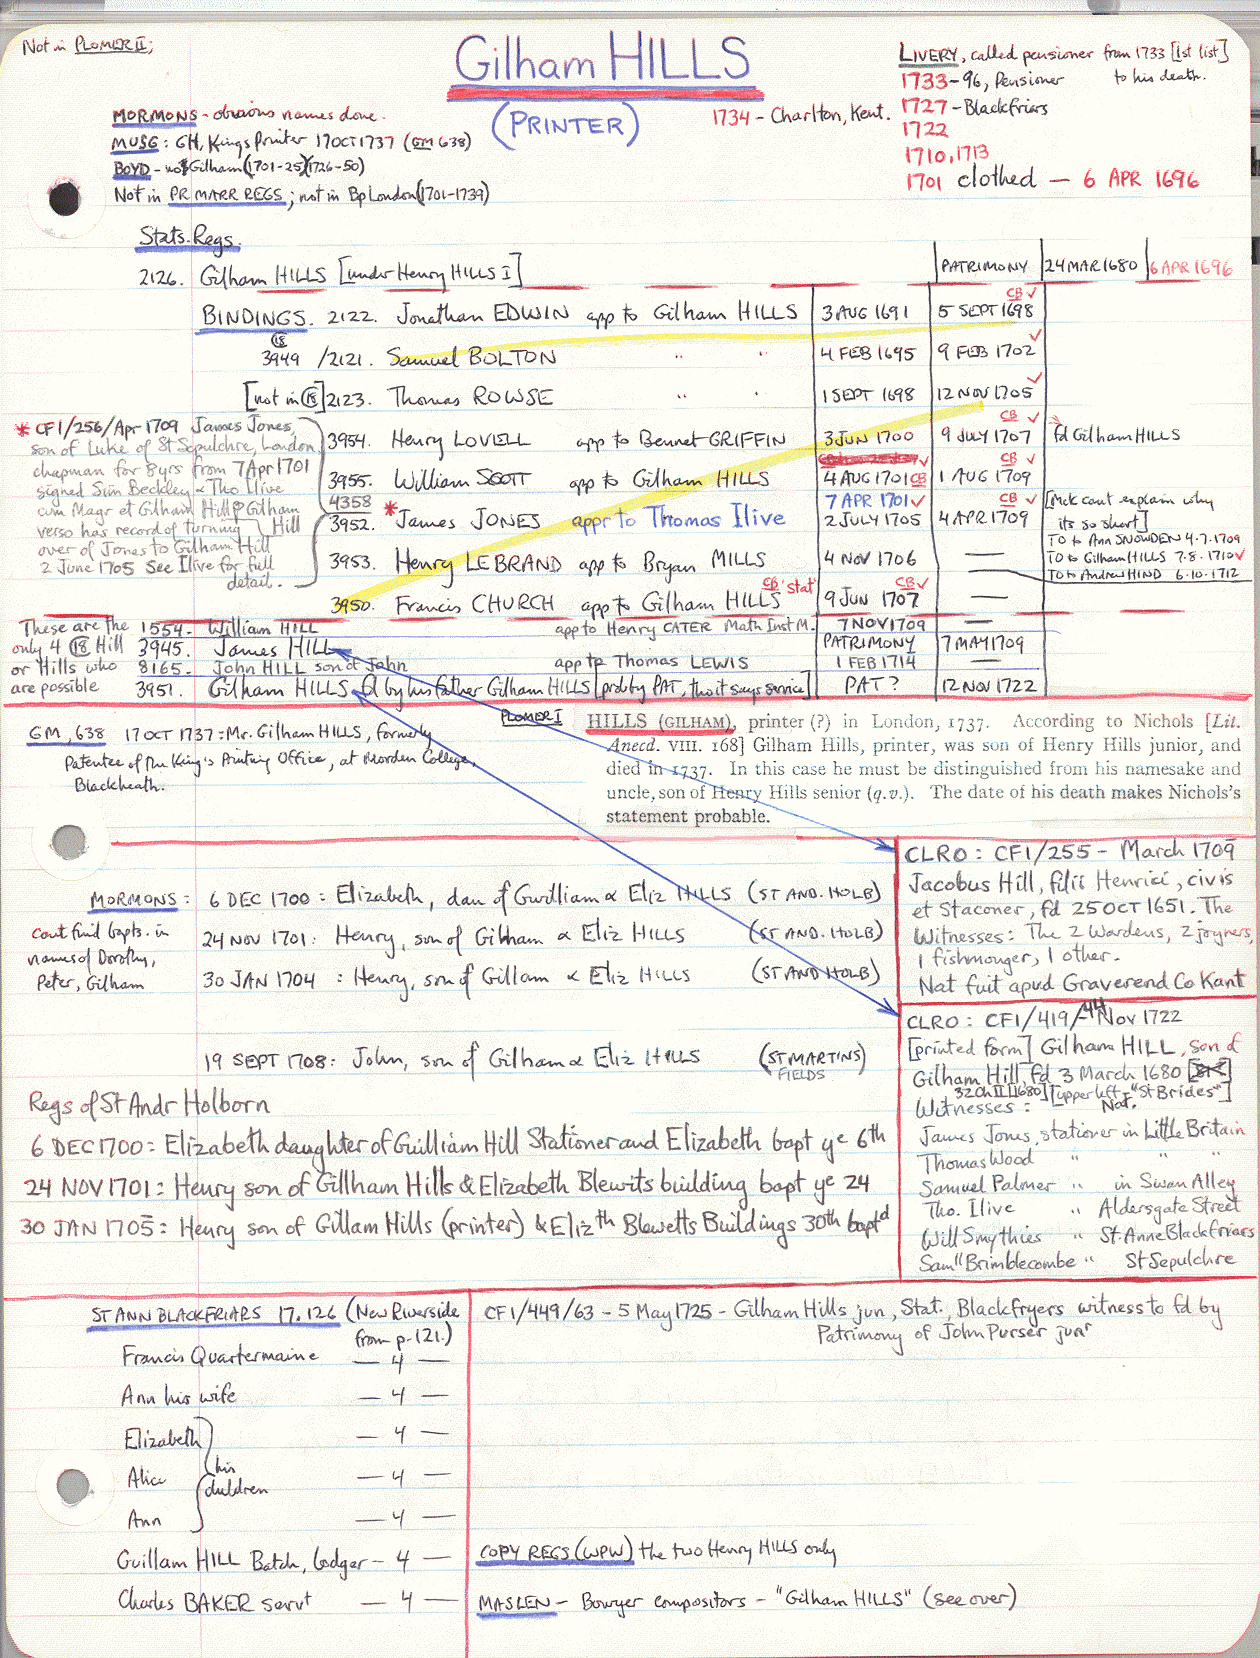 Not in PLOMER II;
Gilham HILLS
(PRINTER)
LIVERY, called pensioner from 1733 [1st list]
to his death.
1733-96, Pensioner
1734 - Charlton, Kent.
1727 - Blackfriars
1722
1710, 1713
1701 clothed — 6 APR 1696
MORMONS - obvious names done.
MUSG: GH, Kings Printer 17 OCT 1737 (GM 638)
BOYD - not Gilham (1701-25)(1726-50)
Not in PR MARR REGS; not in Bp London (1701-1739)
Stats. Regs.
2126. Gilham HILLS [under Henry HILLS I] PATRIMONY 24 MAR 1680 6 APR 1696
BINDINGS. 2122. Jonathan EDWIN app to Gilham HILLS 3 AUG 1691 5 SEPT 1698 CB ✓
3949 (18) / 2121. Samuel BOLTON " " 4 FEB 1695 9 FEB 1702 ✓
[not in (18)] 2123. Thomas ROWSE " " 1 SEPT 1698 12 NOV 1705 ✓
3954. Henry LOVELL app to Bennet GRIFFIN 3 JUN 1700 9 JULY 1707 CB ✓ fd Gilham HILLS
3955. William SCOTT app to Gilham HILLS 4 AUG 1701 CB ✓ 1 AUG 1709 CB ✓
4358
3952. * James JONES appr to Thomas Ilive 7 APR 1701 ✓ 2 JULY 1705 4 APR 1709 CB ✓ [McK cant explain why
its so short]
3953. Henry LEBRAND app to Bryan MILLS 4 NOV 1706 — TO to Ann SNOWDEN 4.7.1709
TO to Gilham HILLS 7.8.1710 ✓
TO to Andrew HIND 6.10.1712
3950. Francis CHURCH app to Gilham HILLS CB 'stat' 9 JUN 1707 CB ✓ —
* CF1/256/Apr 1709 James Jones,
son of Luke of St Sepulchre, London
chapman for 8 yrs from 7 Apr 1701
signed Sim Beckley & Tho Ilive
cum Magr et Gilham Hill & Gilham Hill
verso has record of turning
over of Jones to Gilham Hill
2 June 1705 See Ilive for full
detail.
These are the
only 4 (18) Hill
or Hills who
are possible
1554. William HILL app to Henry CATER Math Inst M. 7 NOV 1709 —
3945. James HILL PATRIMONY 7 MAY 1709
8165. John HILL son of John app to Thomas LEWIS 1 FEB 1714 —
3951. Gilham HILLS fd by his father Gilham HILLS [prob by PAT, tho it says service] PAT? 12 NOV 1722
GM, 638 17 OCT 1737: Mr. Gilham HILLS, formerly
Patentee of the King's Printing Office, at Morden College,
Blackheath.
PLOMER I
HILLS (GILHAM), printer (?) in London, 1737. According to Nichols [Lit.
Anecd. VIII. 168] Gilham Hills, printer, was son of Henry Hills junior, and
died in 1737. In this case he must be distinguished from his namesake and
uncle, son of Henry Hills senior (q.v.). The date of his death makes Nichols's
statement probable.
CLRO: CF1/255 - March 1709
Jacobus Hill, filii Henrici, civis
et Staconer, fd 25 OCT 1651. The
Witnesses: The 2 Wardens, 2 joyners,
1 fishmonger, 1 other.
Nat fuit apud Graverend Co Kant
MORMONS: 6 DEC 1700: Elizabeth, dau of Gwilliam & Eliz HILLS (ST AND. HOLB)
cant find bapts. in
names of Dorothy,
Peter, Gilham
24 NOV 1701: Henry, son of Gilham & Eliz HILLS (ST AND. HOLB)
30 JAN 1704: Henry, son of Gillam & Eliz HILLS (ST AND HOLB)
19 SEPT 1708: John, son of Gilham & Eliz HILLS (ST MARTINS FIELDS)
CLRO: CF1/419/44 Nov 1722
[printed form] Gilham HILL, son of
Gilham Hill fd 3 March 1680
32 Ch II [1680] [upper left - "St Brides"]
Witnesses: Nat.
James Jones, stationer in Little Britain
Thomas Wood " " "
Samuel Palmer " in Swan Alley
Tho. Ilive " Aldersgate Street
Will Smythies " St. Anne Blackfriars
Saml Brimblecombe " St Sepulchre
Regs of St Andr Holborn
6 DEC 1700: Elizabeth daughter of Guilliam Hill Stationer and Elizabeth bapt ye 6th
24 NOV 1701: Henry son of Gillham Hills & Elizabeth Blewits building bapt ye 24
30 JAN 1705: Henry son of Gillam Hills (printer) & Elizth Blewetts Buildings 30th baptd
ST ANN BLACKFRIARS 17.126 (New Riverside
from p.121.)
Francis Quartermaine — 4 —
Ann his wife — 4 —
Elizabeth — 4 —
Alice — 4 —
his children
Ann — 4 —
Guillam HILL Batch, Lodger — 4 —
Charles BAKER servt — 4 —
CF1/449/63 - 5 May 1725 - Gilham Hills jun, Stat., Blackfryers witness to fd by
Patrimony of John Purser junr
COPY REGS (WPW) the two Henry HILLS only
MASLEN - Bowyer compositors - "Gilham HILLS" (see over)